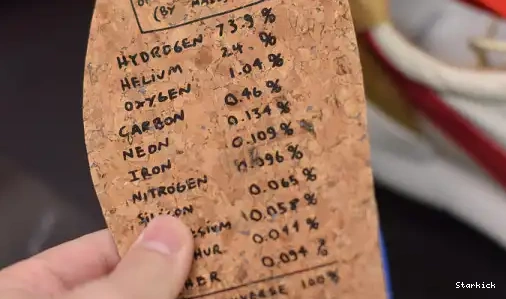 (BY MASS
HYDROGEN 73.9 %
HELIUM 24 %
OXYGEN 1.04 %
CARBON 0.46 %
NEON 0.134 %
IRON 0.109 %
NITROGEN 0.096 %
SILICON 0.065 %
SIUM 0.058 %
HUR 0.044 %
HER 0.034 %
VERSE 100%
Starkick